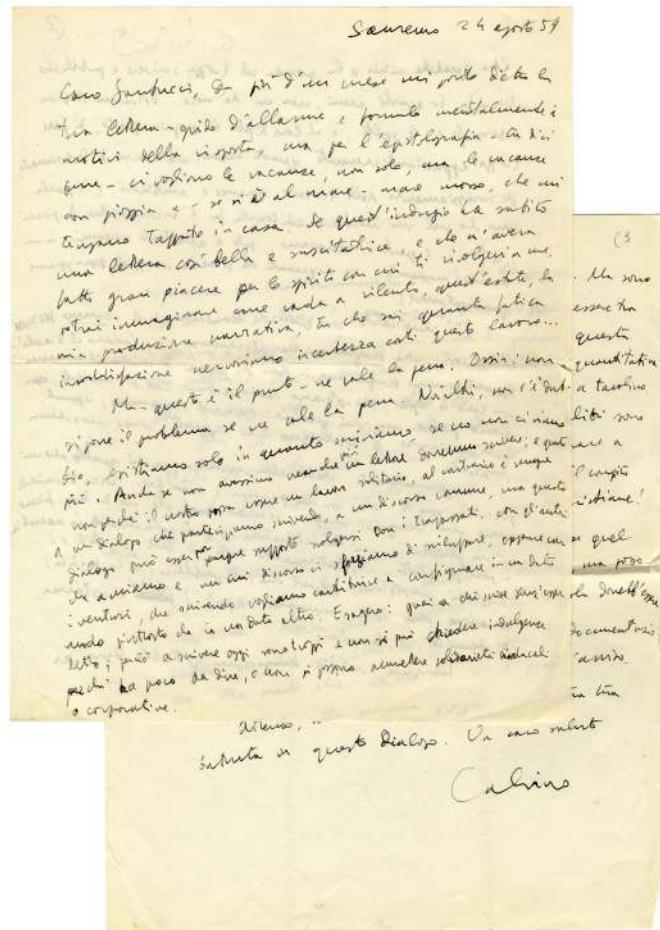 Sanremo 24 agosto 59
Caro Santucci, da più d'un mese mi porto dietro la
tua lettera-grido d'allarme e formulo mentalmente i
motivi della risposta, ma per l'epistolografia - tu dici
bene - ci vogliono le vacanze, non solo, ma le vacanze
con pioggia e - se si è al mare - mare mosso, che mi
tengano tappato in casa. Se quest'indugio ha subito
una lettera così bella e suscitatrice e che m'aveva
fatto gran piacere per lo spirito con cui ti rivolgevi a me,
potrai immaginare come vada a rilento, quest'estate, la
mia produzione narrativa, tu che sai quanta fatica
insoddisfazione nervosismo incertezza costi questo lavoro...
Ma - questo è il punto - ne vale la pena. Ossia: non
si pone il problema se ne vale la pena. Noialtri, non c'è
esistiamo solo in quanto scriviamo, se no non ci siamo
più. Anche se non avessimo neanche più un lettore dovremmo scrivere; e questo
non perché il nostro possa essere un lavoro solitario, al contrario è sempre
a un dialogo che partecipiamo scrivendo, a un discorso comune, ma questo
dialogo può esser pur sempre supposto svolgersi con i trapassati, con gli autori
che amiamo e un cui discorso ci sforziamo di sviluppare, oppure con
i venturi, che scrivendo vogliamo contribuire a configurare in un dato
modo piuttosto che in un dato altro. Esagero: guai a chi scrive senz'esser
letto; perciò a scrivere oggi sono troppi e non si può chiedere indulgenza
perchi ha poco da dire, e non si possono ammettere solidarietà sindacali
o corporative.
(3
Ma sono
essere tra
questa
quantitativa
a tavolino
sono
a
il compito
cristiane!
quel
ma poso
dovrebb'essere
documentario
tua
di questo dialogo. Un caro saluto
Calvino